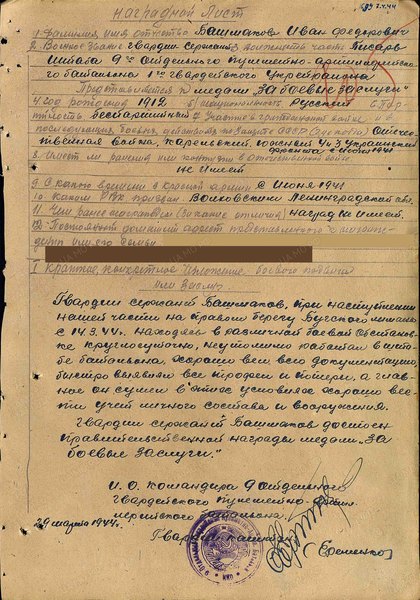 Наградной Лист
1. Фамилия имя отчество Башмаков Иван Федорович
2. Военное звание гвардии сержант 3. должность часть писарь
штаба 9го отдельного пулеметно-артиллерийско-
го батальона 1го гвардейского укрепрайона
Представляется к медали "За боевые заслуги"
4. Год рождения 1912 5. национальность Русский 6. Пар-
тийность беспартийный 7. Участие в гражданской войне и в
последующих боевых действиях по защите СССР Отече-
ственная война, Карельский, Южный 4 и 3 Украинский
фронта с июня 1941
8. Имеет ли ранения или контузии в отечественной войне
не имеет
9. С какого времени в Красной армии с Июня 1941
10. Каким РВК призван Волховским Ленинградской обл.
11. Чем ранее награжден (за какие отличия) наград не имеет.
12. Постоянный домашний адрес представляемого к награжде-
нию или его семьи
I Краткое конкретное изложение боевого подвига
или заслуг
Гвардии сержант Башмаков, при наступлении
нашей части на правом берегу Бугского лимана
с 14.3.44г. находясь в различной боевой обстанов-
ке круглосуточно, неутомимо работал в шта-
бе батальона, хорошо вел всю документацию,
быстро выявлял все трофеи и потери, а глав-
ное он сумел в этих условиях хорошо вес-
ти учет личного состава и вооружения.
Гвардии сержант Башмаков достоен
правительственной награды медали "За
боевые заслуги".
И.О. командира 9 отдельного
гвардейского пулеметно-артил-
лерийского батальона
29 марта 1944г.
Гвардии капитан
(Еременко)